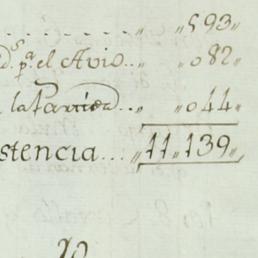 ........ „593„
d.s p.a el Avio.. „082„
la Partida... „044„
stencia... „11„139„